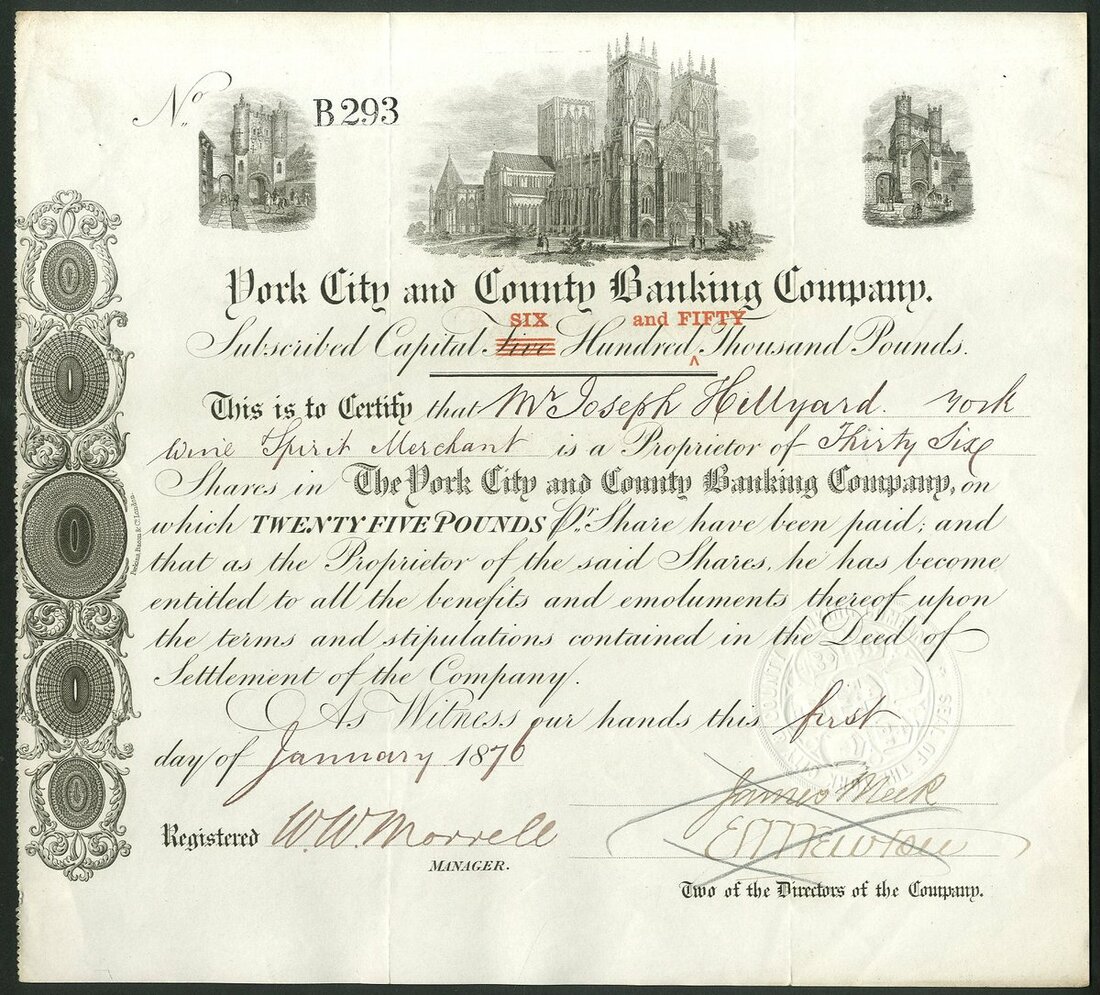 No B293
York City and County Banking Company.
SIX and FIFTY
Subscribed Capital five Hundred ^ Thousand Pounds.
This is to Certify that Mr Joseph Hillyard. York
Wine Spirit Merchant is a Proprietor of Thirty Six
Shares in The York City and County Banking Company, on
which TWENTY FIVE POUNDS Pr. Share have been paid; and
that as the Proprietor of the said Shares, he has become
entitled to all the benefits and emoluments thereof upon
the terms and stipulations contained in the Deed of
Settlement of the Company.
As Witness our hands this first
day of January 1876
James Meek
Registered W. W. Morrell
MANAGER.
Two of the Directors of the Company.
Perkins, Bacon & Co. London.